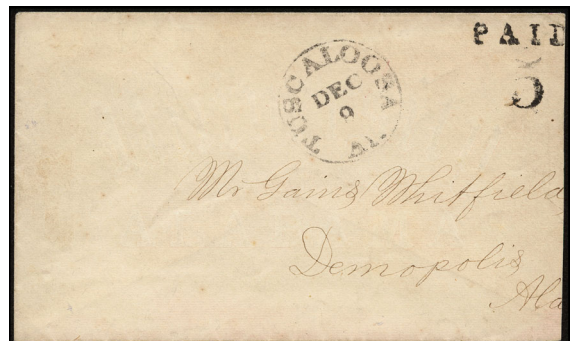 PAID
5
TUSCALOOSA Al.
DEC
9
Mr Gains Whitfield
Demopolis
Ala